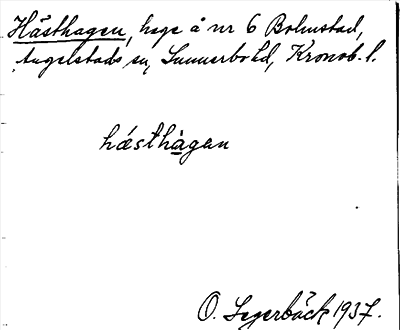 Hästhagen, hage å nr 6 Bolmstad,
Angelstads sn, Sunnerbo hd, Kronob. l.
hästhagen
O. Segerbäck 1937.